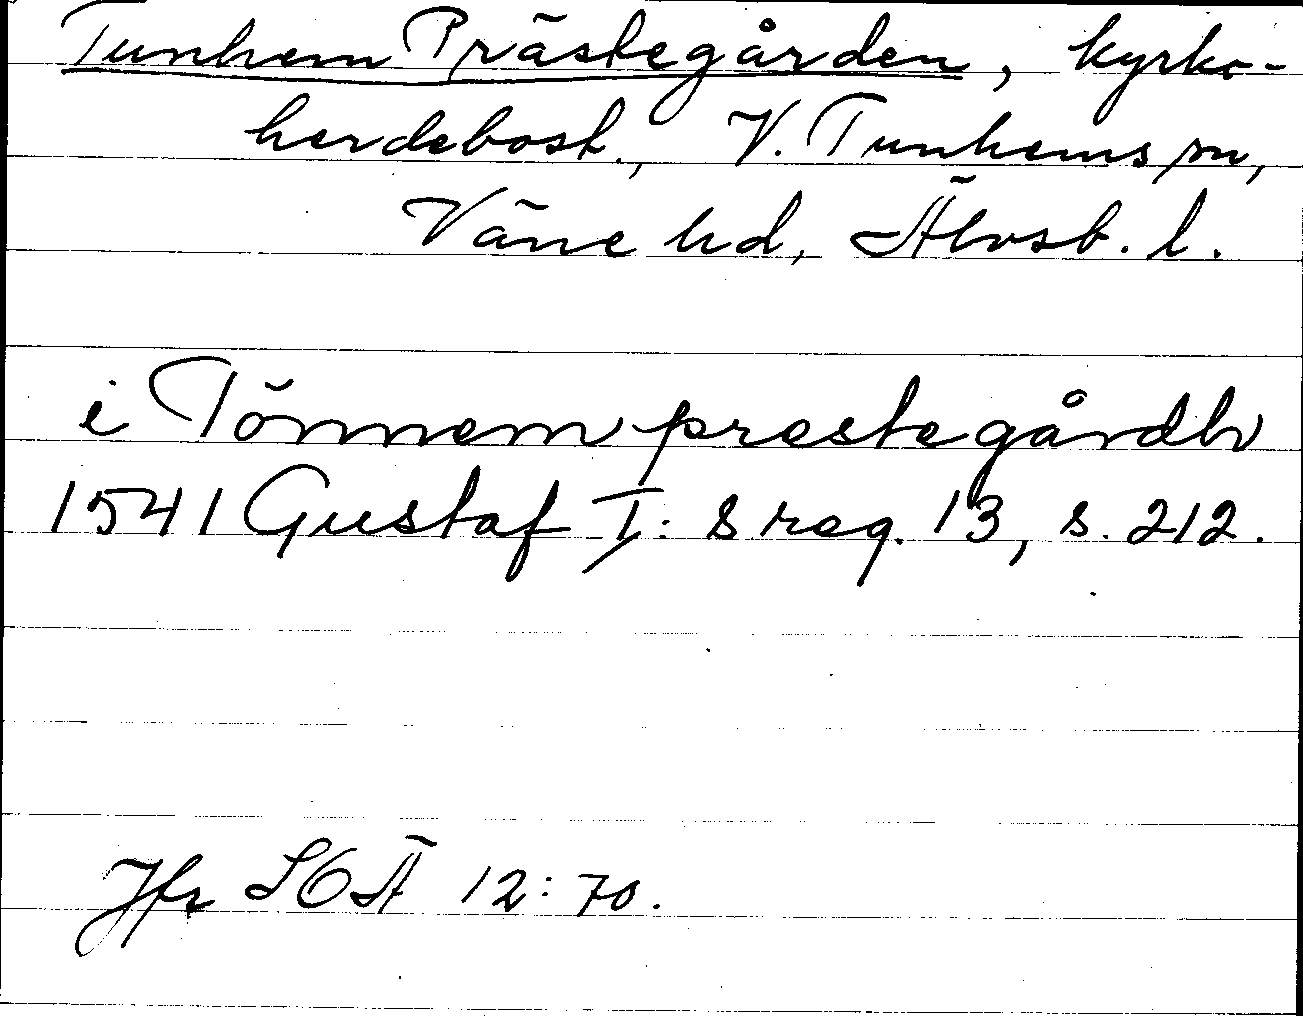 Tunhem Prästegården, kyrko-
herdebost., V. Tunhems sn,
Väne hd, Älvsb. l.
i Tönnem prestegårdh
1541 Gustaf I: s reg. 13, s. 212.
Jfr SOÄ 12:70.